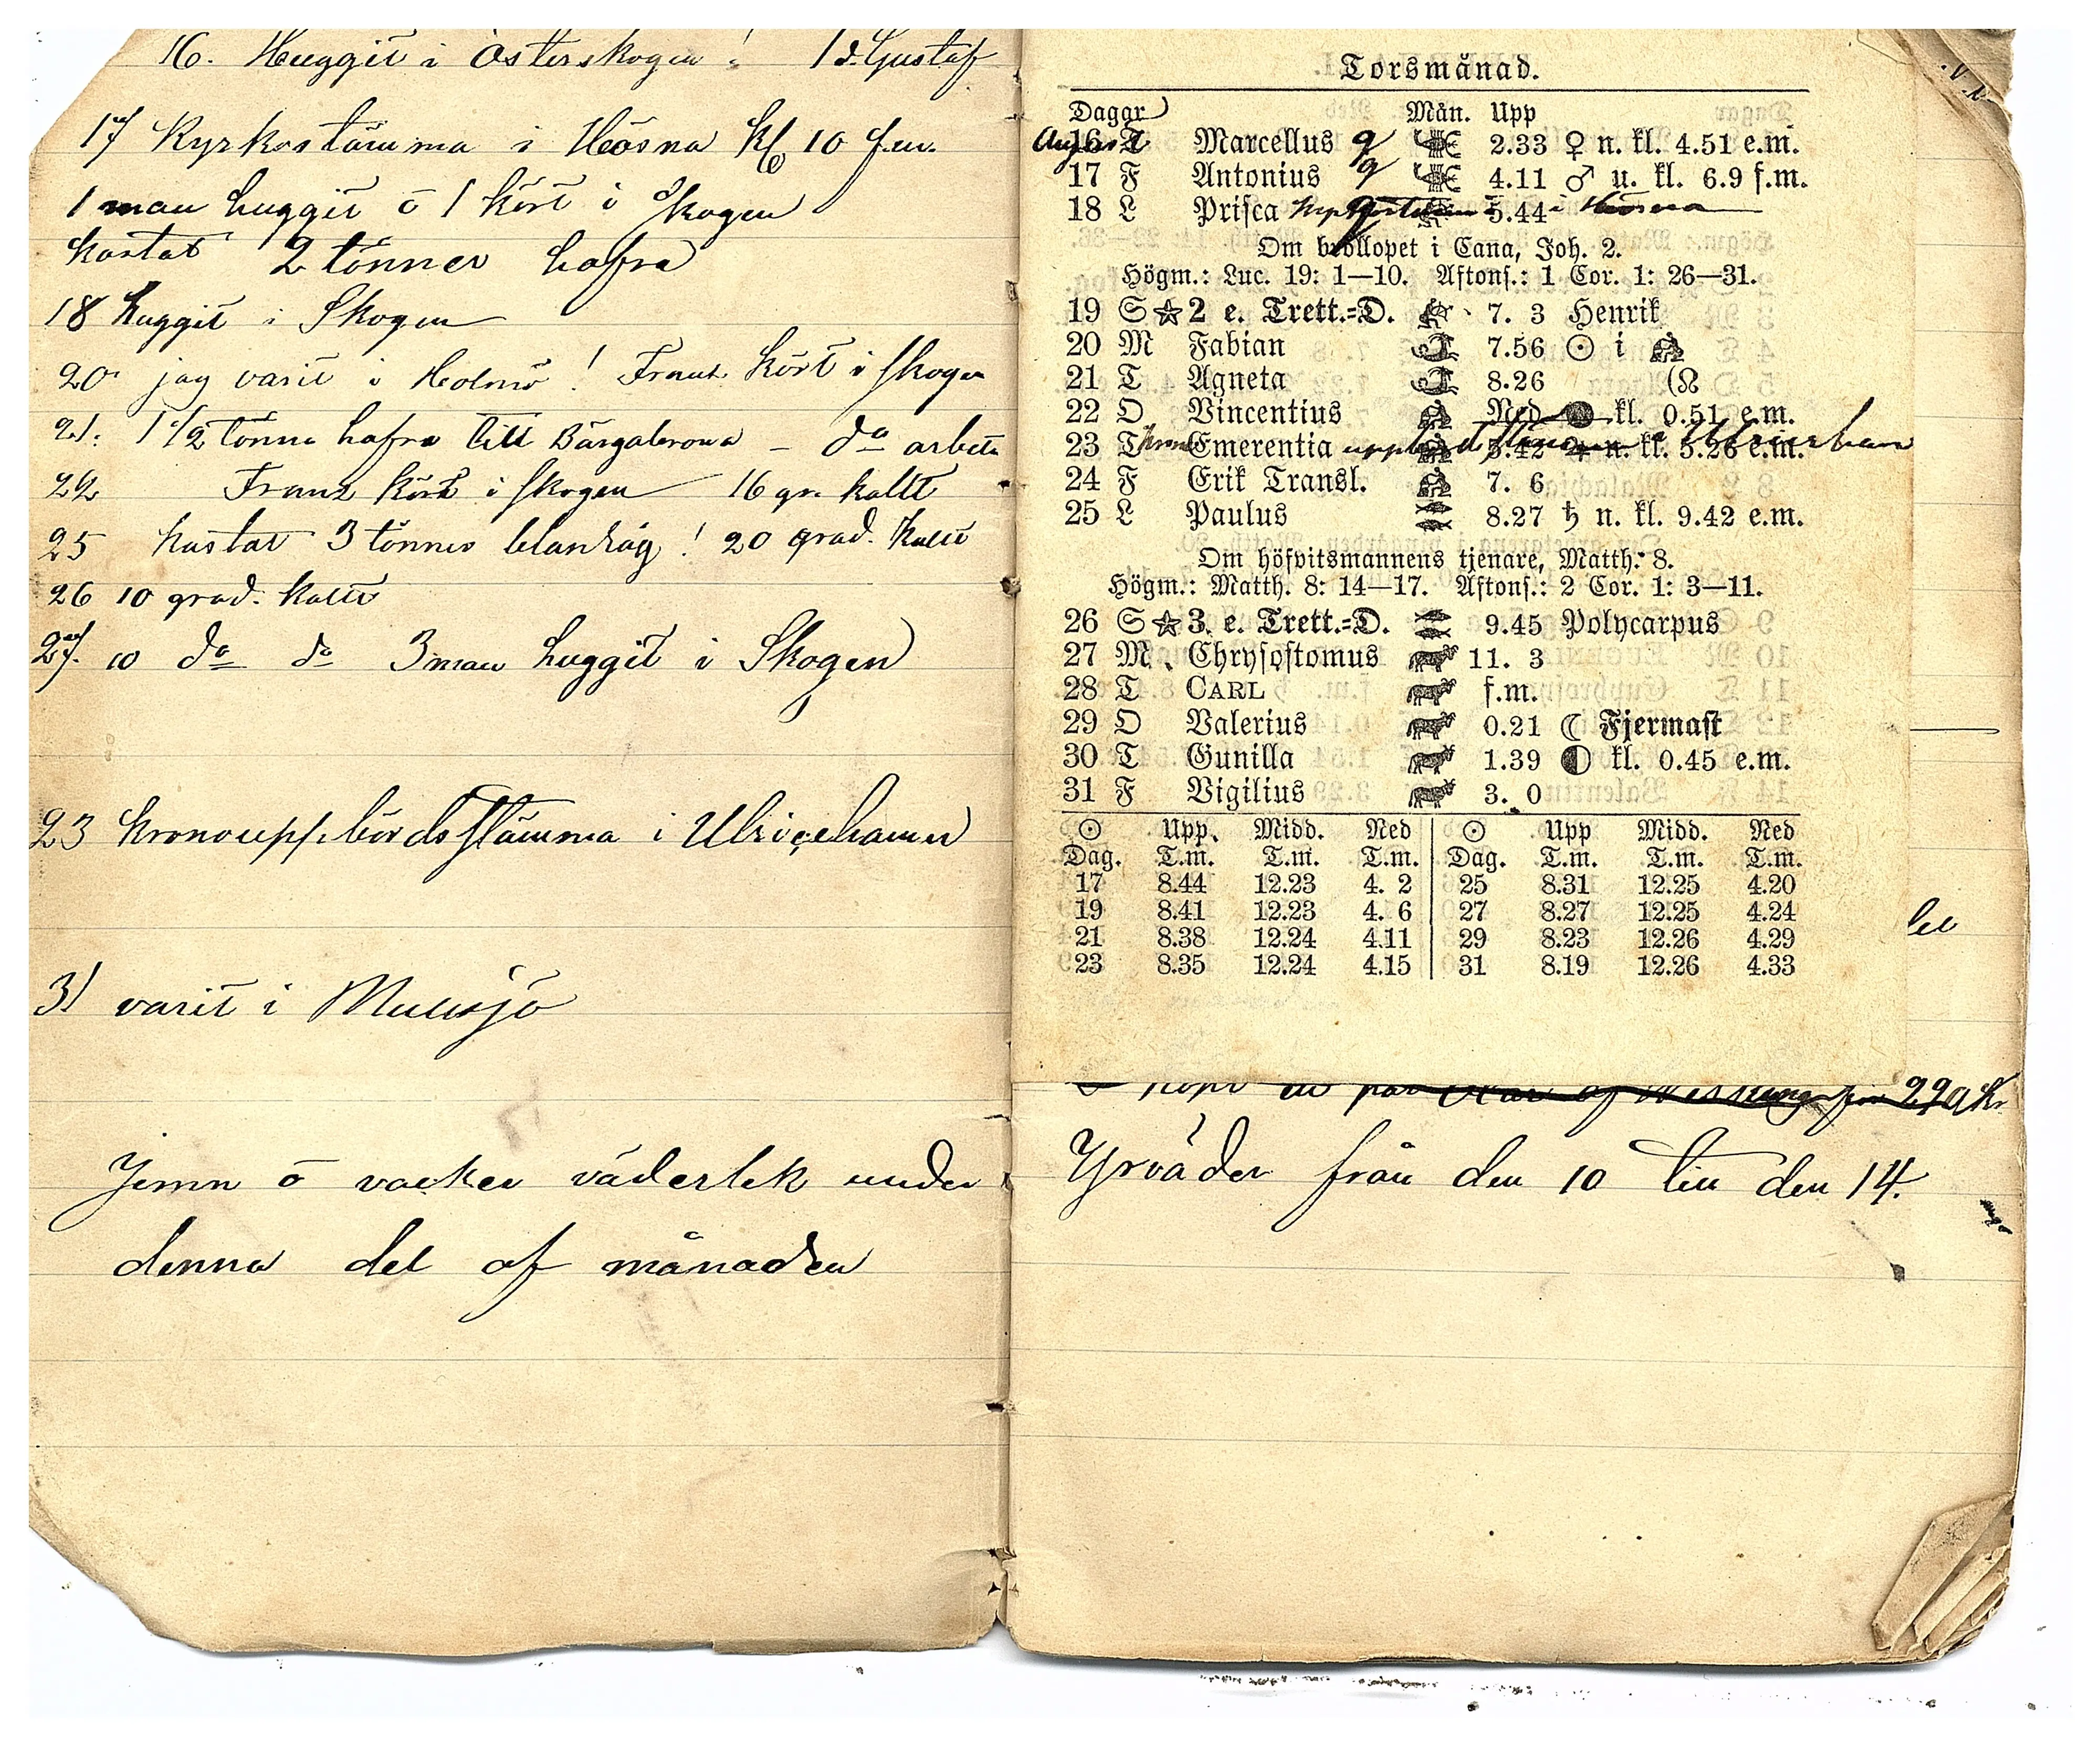 16. Huggit i Österskogen! 1 d. Gustaf
17 Kyrkostämma i Hösna Kl 10 f.m.
1 man huggit o 1 kört i Skogen
kastat 2 tönner hafra
18 huggit i Skogen
20 jag varit i Holmö! Frans kört i skogen
21. 1 1/2 tönna hafra till Bärgabrona – do arbete
22 Frans kört i skogen 16 gr. kallt
25 kastat 3 tönner blansäg! 20 grad. kallt
26 10 grad. kallt
27. 10 do do 3 man huggit i Skogen
23 Kronouppbördsstämma i Ulricehamn
31 varit i Mullsjö
Jemn o vacker väderlek under
denna del af månaden
Torsmånad.
Dagar Mån. Upp
August
16 T Marcellus 2.33 ♀ n. kl. 4.51 e.m.
17 F Antonius 4.11 ♂ u. kl. 6.9 f.m.
18 L Prisca 5.44 i Hösna
Om bröllopet i Cana, Joh. 2.
Högm.: Luc. 19: 1—10. Aftons.: 1 Cor. 1: 26—31.
19 S ☆ 2 e. Trett.=D. 7. 3 Henrik
20 M Fabian 7.56 ☉ i
21 T Agneta 8.26 (☊
22 O Vincentius Ned kl. 0.51 e.m.
23 T Emerentia 5.42 ♃ n. kl. 5.26 e.m.
24 F Erik Transl. 7. 6
25 L Paulus 8.27 ♄ n. kl. 9.42 e.m.
Om höfvitsmannens tjenare, Matth. 8.
Högm.: Matth. 8: 14—17. Aftons.: 2 Cor. 1: 3—11.
26 S ☆ 3. e. Trett.=D. 9.45 Polycarpus
27 M Chrysostomus 11. 3
28 T CARL f.m.
29 O Valerius 0.21 ☾ Fjermast
30 T Gunilla 1.39 ◐ kl. 0.45 e.m.
31 F Vigilius 3. 0
☉ Upp. Midd. Ned ☉ Upp Midd. Ned
Dag. T.m. T.m. T.m. Dag. T.m. T.m. T.m.
17 8.44 12.23 4. 2 25 8.31 12.25 4.20
19 8.41 12.23 4. 6 27 8.27 12.25 4.24
21 8.38 12.24 4.11 29 8.23 12.26 4.29
23 8.35 12.24 4.15 31 8.19 12.26 4.33
köpt ett par af för 229 Kr
Yrväder från den 10 till den 14.